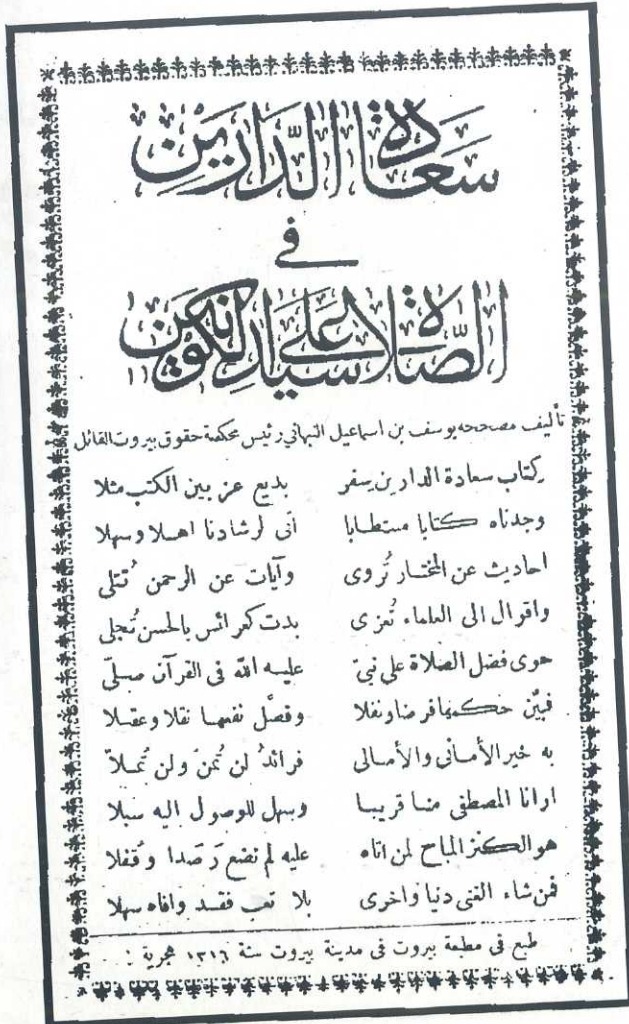 سَعَادَة الدَّارَيْن
في
الصَّلاة عَلَى سَيِّد الكَوْنَيْن
تأليف مصححه يوسف بن اسماعيل النبهاني رئيس محكمة حقوق بيروت القائل
كتاب سعادة الدارين سِفر بديع عز بين الكتب مثلا
وجدناه كتابا مستطابا أتى لرشادنا اهلا وسهلا
احاديث عن المختار تُروى وآيات عن الرحمن تُتلى
واقوال الى العلماء تُعزى بدت كعرائس بالحسن تُجلى
حوى فضل الصلاة على نبيّ عليه الله فى القرآن صلّى
فبيّن حكمها فرضا ونفلا وفصّل نفعها نقلا وعقلا
به خير الأمانى والأمالى فرائدُ لن تُمنّ ولن تُملّا
ارانا المصطفى منا قريبا وسهل للوصول اليه سبلا
هو الكنز المباح لمن اتاه عليه لم نضع رَصَدا وقُفلا
فمن شاء الغنى دنيا واخرى بلا تعب فقد وافاه سهلا
طبع فى مطبعة بيروت فى مدينة بيروت سنة ١٣١٦ هجرية :